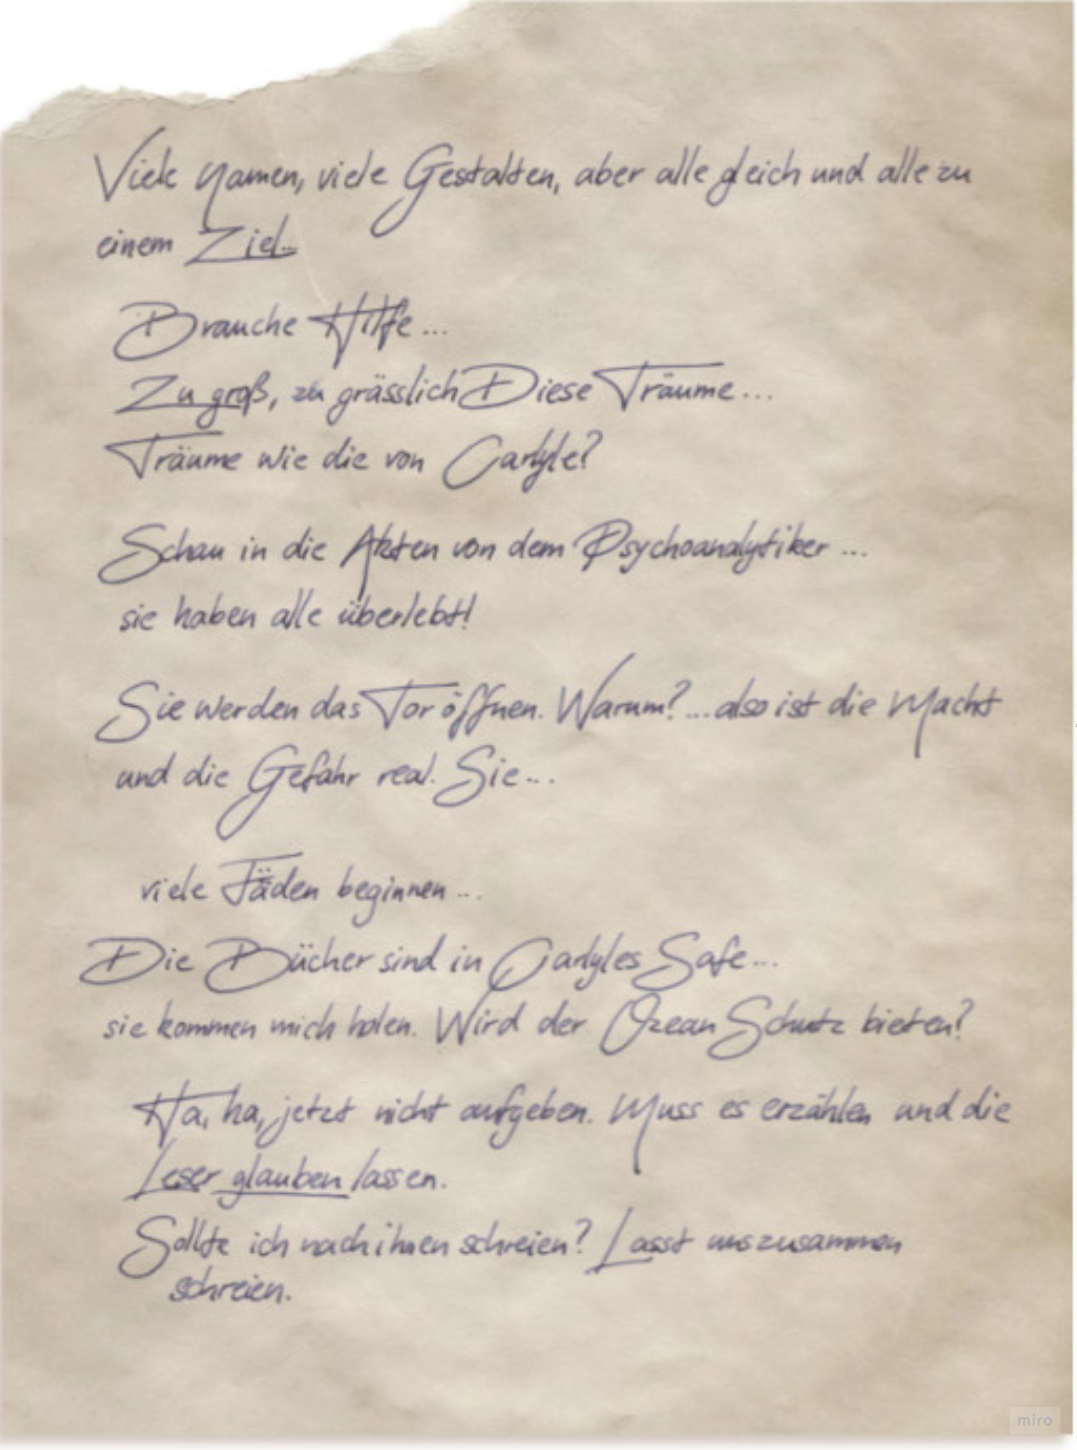 Viele Namen, viele Gestalten, aber alle gleich und alle zu
einem Ziel...
Brauche Hilfe...
Zu groß, zu grässlich Diese Träume...
Träume wie die von Carlyle?
Schau in die Akten von dem Psychoanalytiker...
sie haben alle überlebt!
Sie werden das Tor öffnen. Warum? ...also ist die Macht
und die Gefahr real. Sie...
viele Fäden beginnen...
Die Bücher sind in Carlyles Safe...
sie kommen mich holen. Wird der Ozean Schutz bieten?
Ha, ha, jetzt nicht aufgeben. Muss es erzählen und die
Leser glauben lassen.
Sollte ich nach ihnen schreien? Lasst uns zusammen
schreien.
miro